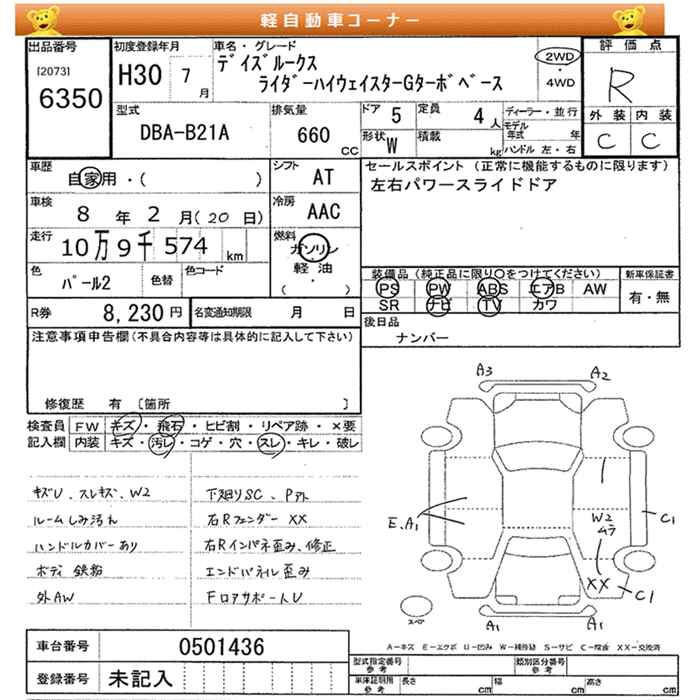 軽自動車コーナー
出品番号
[2073]
6350
初度登録年月
H30 7 月
車名・グレード
デイズルークス
ライダーハイウェイスターGターボベース
2WD
・
4WD
評価点
R
外装 内装
C C
型式
DBA-B21A
排気量
660 CC
ドア 5
定員 4 人
ディーラー・並行
モデル年式 年
形状 W
積載 kg
ハンドル 左・右
車歴
自家用・( )
シフト
AT
セールスポイント (正常に機能するものに限ります)
左右パワースライドドア
車検
8 年 2 月 (20 日)
冷房
AAC
走行
10万9千574 km
燃料
ガソリン
軽油
・
( )
色
パール2
色替
色コード
装備品 (純正品に限り○をつけてください)
PS PW ABS エアB AW
SR ナビ TV カワ
新車保証書
有・無
R券 8,230 円
名変通知期限 月 日
後日品
ナンバー
注意事項申告欄(不具合内容等は具体的に記入して下さい)
修復歴 有 〔箇所 〕
検査員記入欄
FW キズ・飛石・ヒビ割・リペア跡・×要
内装 キズ・汚レ・コゲ・穴・スレ・キレ・破レ
キズU、スレキズ、W2
ルームしみ汚れ
ハンドルカバーあり
ボディ鉄粉
外AW
下廻りSC、Pアト
右Rフェンダー XX
右Rインパネ歪み、修正
エンドパネル歪み
FロアサポートU
A3
A2
E.A1
W2
ムラ
C1
XX
C1
A1
A1
スペア
A=キズ E=エクボ U=凹み W=補修跡 S=サビ C=腐食 XX=交換済
車台番号 0501436
登録番号 未記入
型式指定番号
参考
類別区分番号
参考
車庫証明用
参考
長さ cm
幅 cm
高さ cm